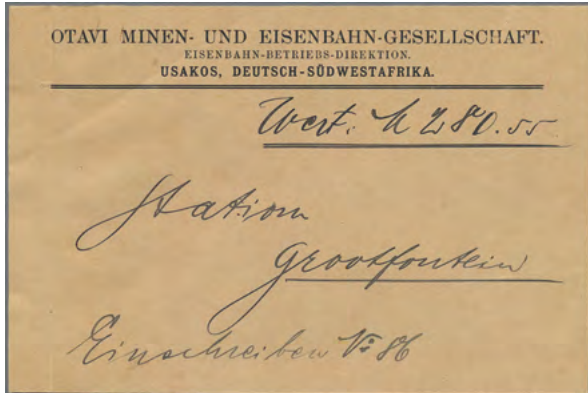 OTAVI MINEN- UND EISENBAHN-GESELLSCHAFT.
EISENBAHN-BETRIEBS-DIREKTION.
USAKOS, DEUTSCH-SÜDWESTAFRIKA.
Wert: M 280.55
Station
Grootfontein
Einschreiben No 86